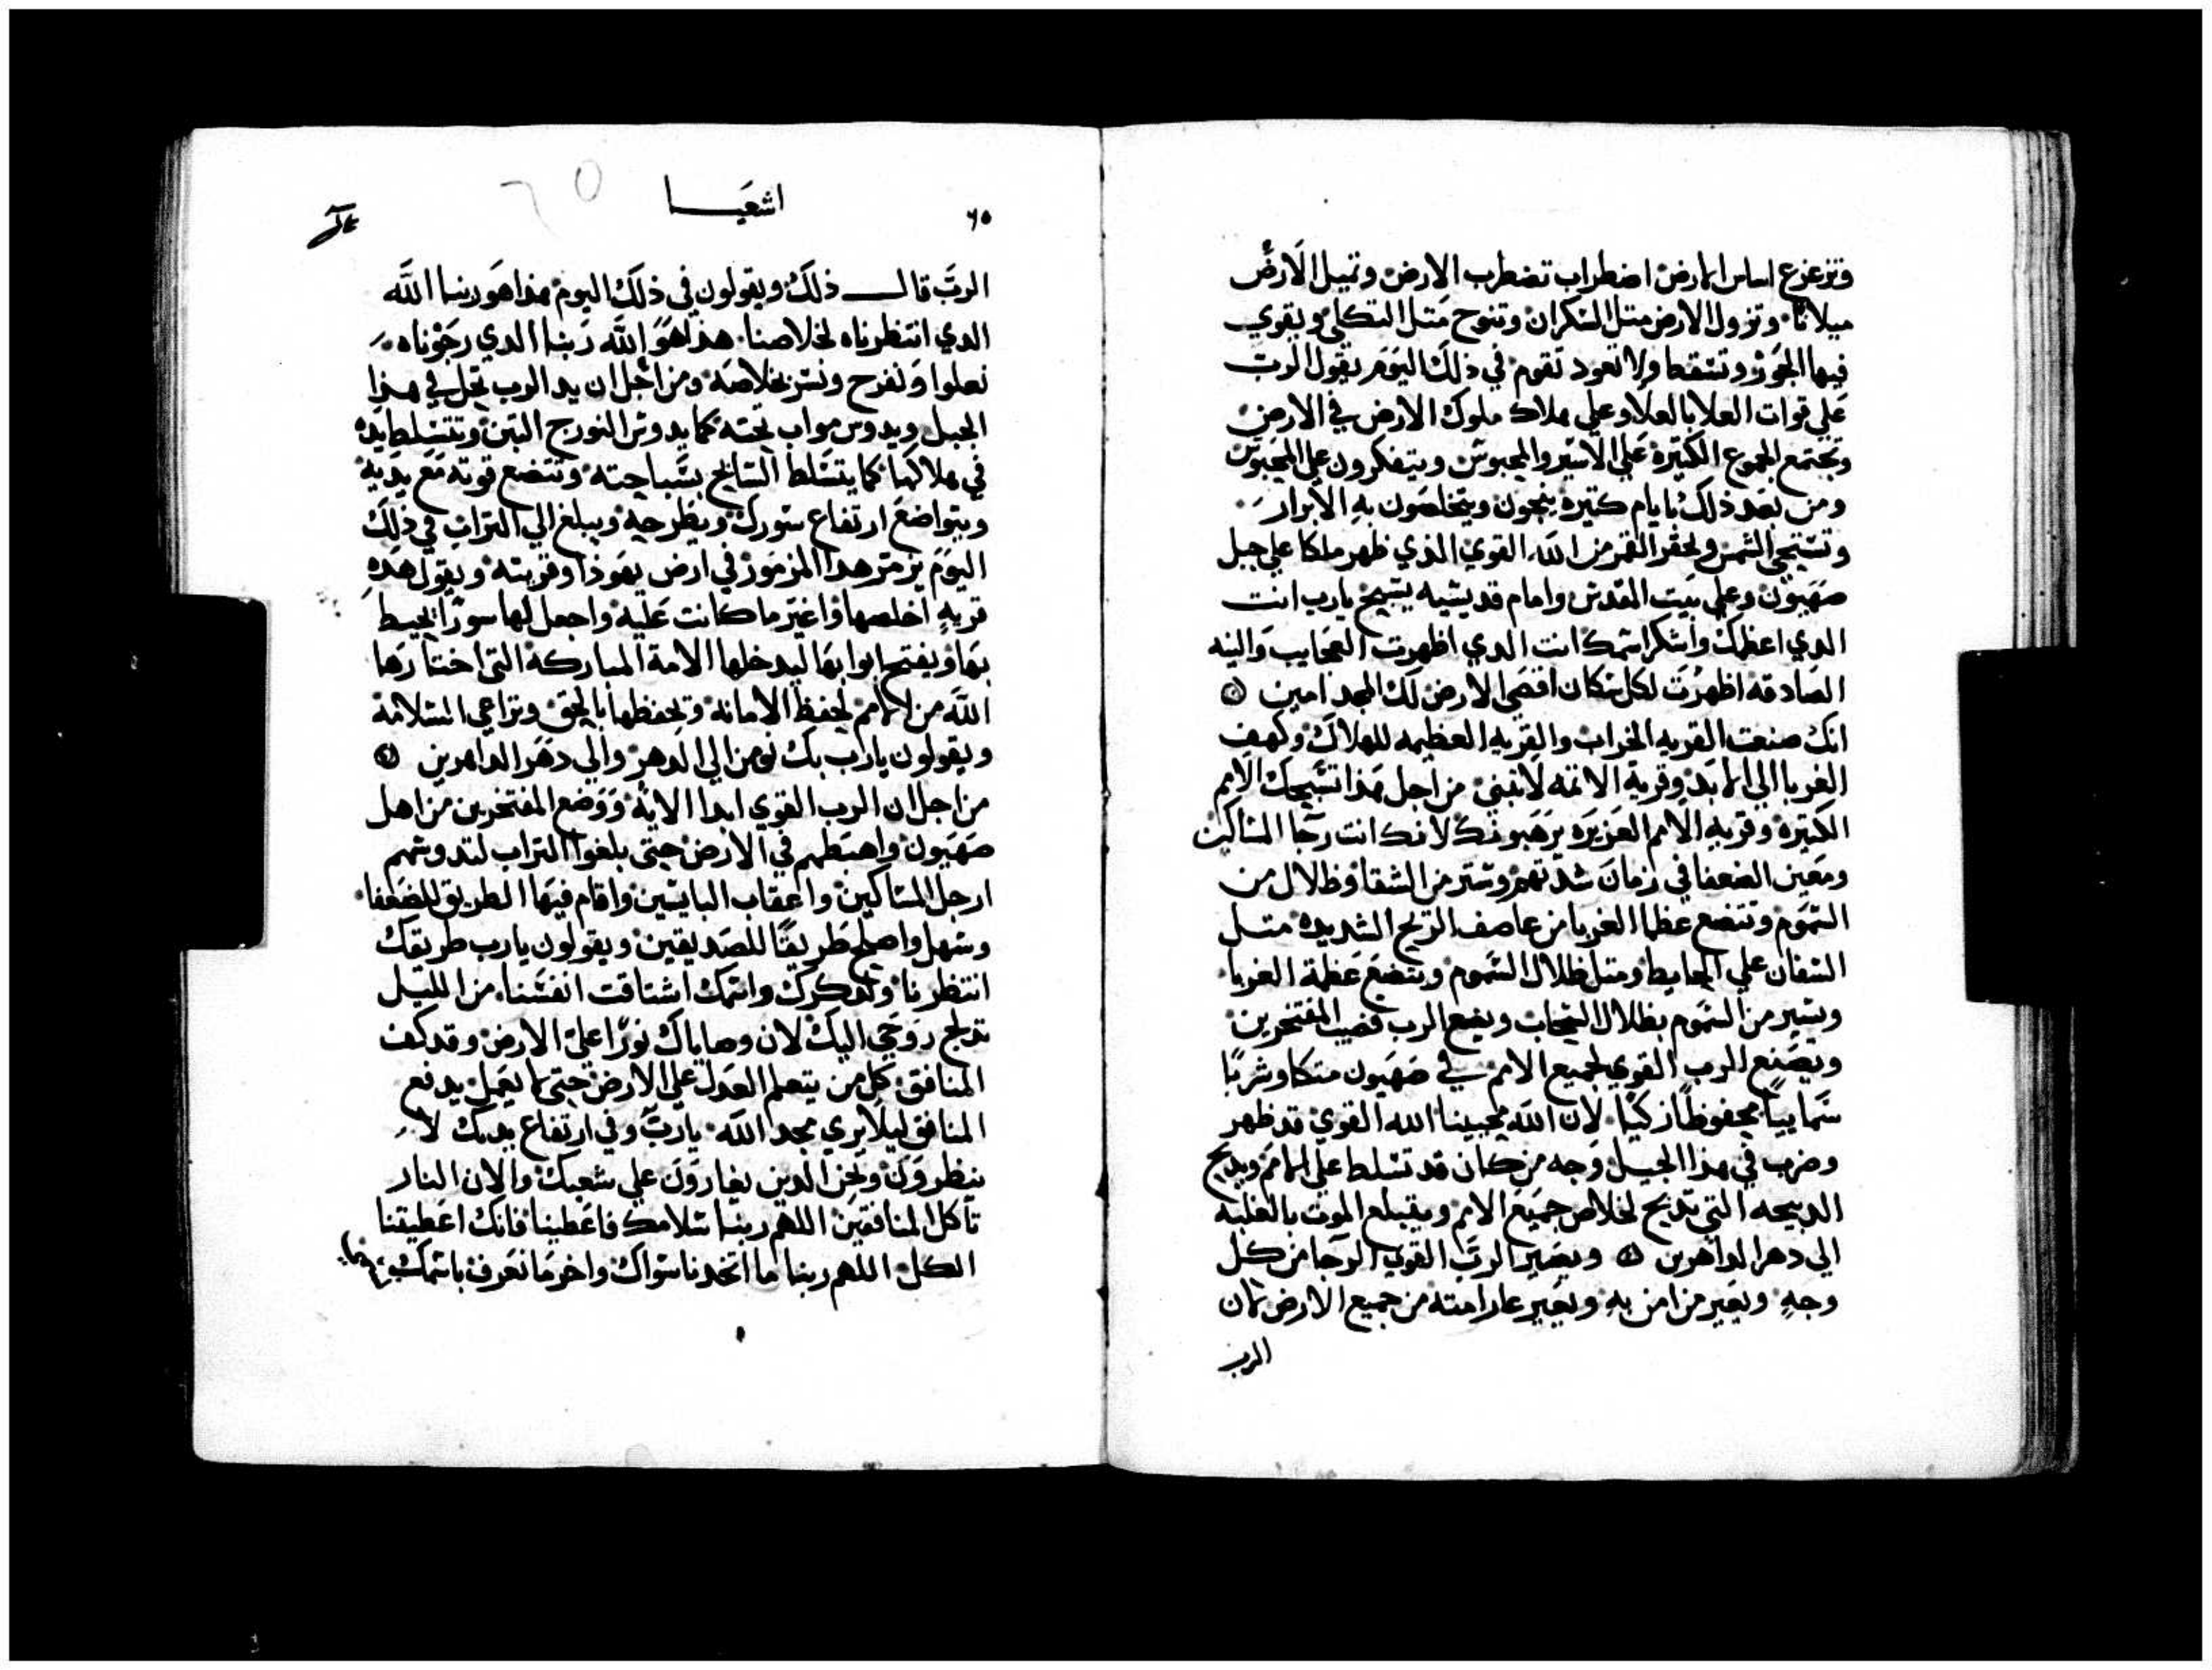 وتزعزع اساس الارض اضطراب تضطرب الارض وتميل الارض
ميلانا وتزول الارض متل السكران وتنوح متل التكلي ويقوي
فيها الجور وتسقط ولا تعود تقوم في ذلك اليوم يقول الرب
علي قوات العلا بالعلا وعلي هلاك ملوك الارض في الارض
وتجتمع الجموع الكتيره علي الاسير والمحبوس ويتفكرون علي المحبوس
ومن بعد ذلك بايام كتيره ينجون ويتخلصون به الابرار
وتستحي الشمس ويحقر القمر من الله القوي الذي ظهر ملكا علي جبل
صهيون وعلي بيت المقدس وامام قديسيه يسبح يارب انت
الدي اعظمك واشكر اسمك انت الدي اظهرت العجايب والنيه
الصادقه اظهرت لكل سكان اقصي الارض لك المجد امين
انك صنعت القريه الخراب والقريه العظيمه للهلاك وكهف
الغربا الي الابد وقرية الاتمه لا تبني من اجل هذا تسبحك الامم
الكتيره وقريه الامم العزيزه يرهبونك لانك انت رجا المساكين
ومعين الضعفا في زمان شدتهم وستر من الشقا وظلال من
السموم وتتضع عظما الغربا من عاصف الريح الشديده متل
السفان علي الحايط ومتل ظلال السموم ويتضع عظمة الغربا
ويستر من السموم بظلال السحاب ويضع الرب قضيب المفتخرين
ويصنع الرب القوي لجميع الامم في صهيون متكا وشربا
سماييا محفوظا زكيا لان الله محيينا الله القوي قد ظهر
وضرب في هذا الجبل وجه من كان قد تسلط علي الامم ويدبح
الدبيحه التي تدبح لخلاص جميع الامم ويبتلع الموت بالغلبه
الي دهر الداهرين ويصير الرب القوي الرجا من كل
وجه ويغير من امن به ويغير عار امته من جميع الارض لان
الرب
٦٥
اشعيا
الرب قال ذلك ويقولون في ذلك اليوم هذا هو ربنا الله
الدي انتظرناه لخلاصنا هذا هو الله ربنا الدي رجوناه
نعلوا ونفرح ونسر بخلاصه ومن اجل ان يد الرب تحل في هذا
الجبل ويدوس مواب تحته كما يدوس النورج التبن وتتسلط يده
في هلاكها كما يتسلط السابح بسباحته وتتضع قوته مع يديه
ويتواضع ارتفاع سورك ويطرحه ويبلغ الي التراب في ذلك
اليوم يرمز هدا المزمور في ارض يهوذا وقريته ويقول هده
قريه اخلصها واغير ما كانت عليه واجعل لها سورا يحيط
بها ويفتح ابوابها ليدخلها الامة المباركه التي اختارها
الله من الامم لحفظ الامانه وتحفظها بالحق وتراعي السلامة
ويقولون يارب بك نومن الي الدهر والي دهر الداهرين
من اجل ان الرب القوي ابدا الايه ووضع المفتخرين من اهل
صهيون واهبطهم في الارض حتي بلغوا التراب لتدوسهم
ارجل المساكين واعقاب البايسين واقام فيها الطريق للضعفا
وسهل واصلح طريقا للصديقين ويقولون يارب طريقك
انتظرنا ولدكرك واسمك اشتاقت انفسنا من الليل
تدلج روحي اليك لان وصاياك نورا علي الارض وقد كف
المنافق كل من يتعلم العدل علي الارض حتي لا يعمل يدفع
المنافق ليلا يري مجد الله يارب وفي ارتفاع يدك لا
ينظرون ونحن الدين يغارون علي شعبك والان النار
تاكل المنافقين اللهم ربنا سلامك فاعطينا فانك اعطيتنا
الكل اللهم ربنا ما اتخدنا سواك واخر ما نعرف باسمك